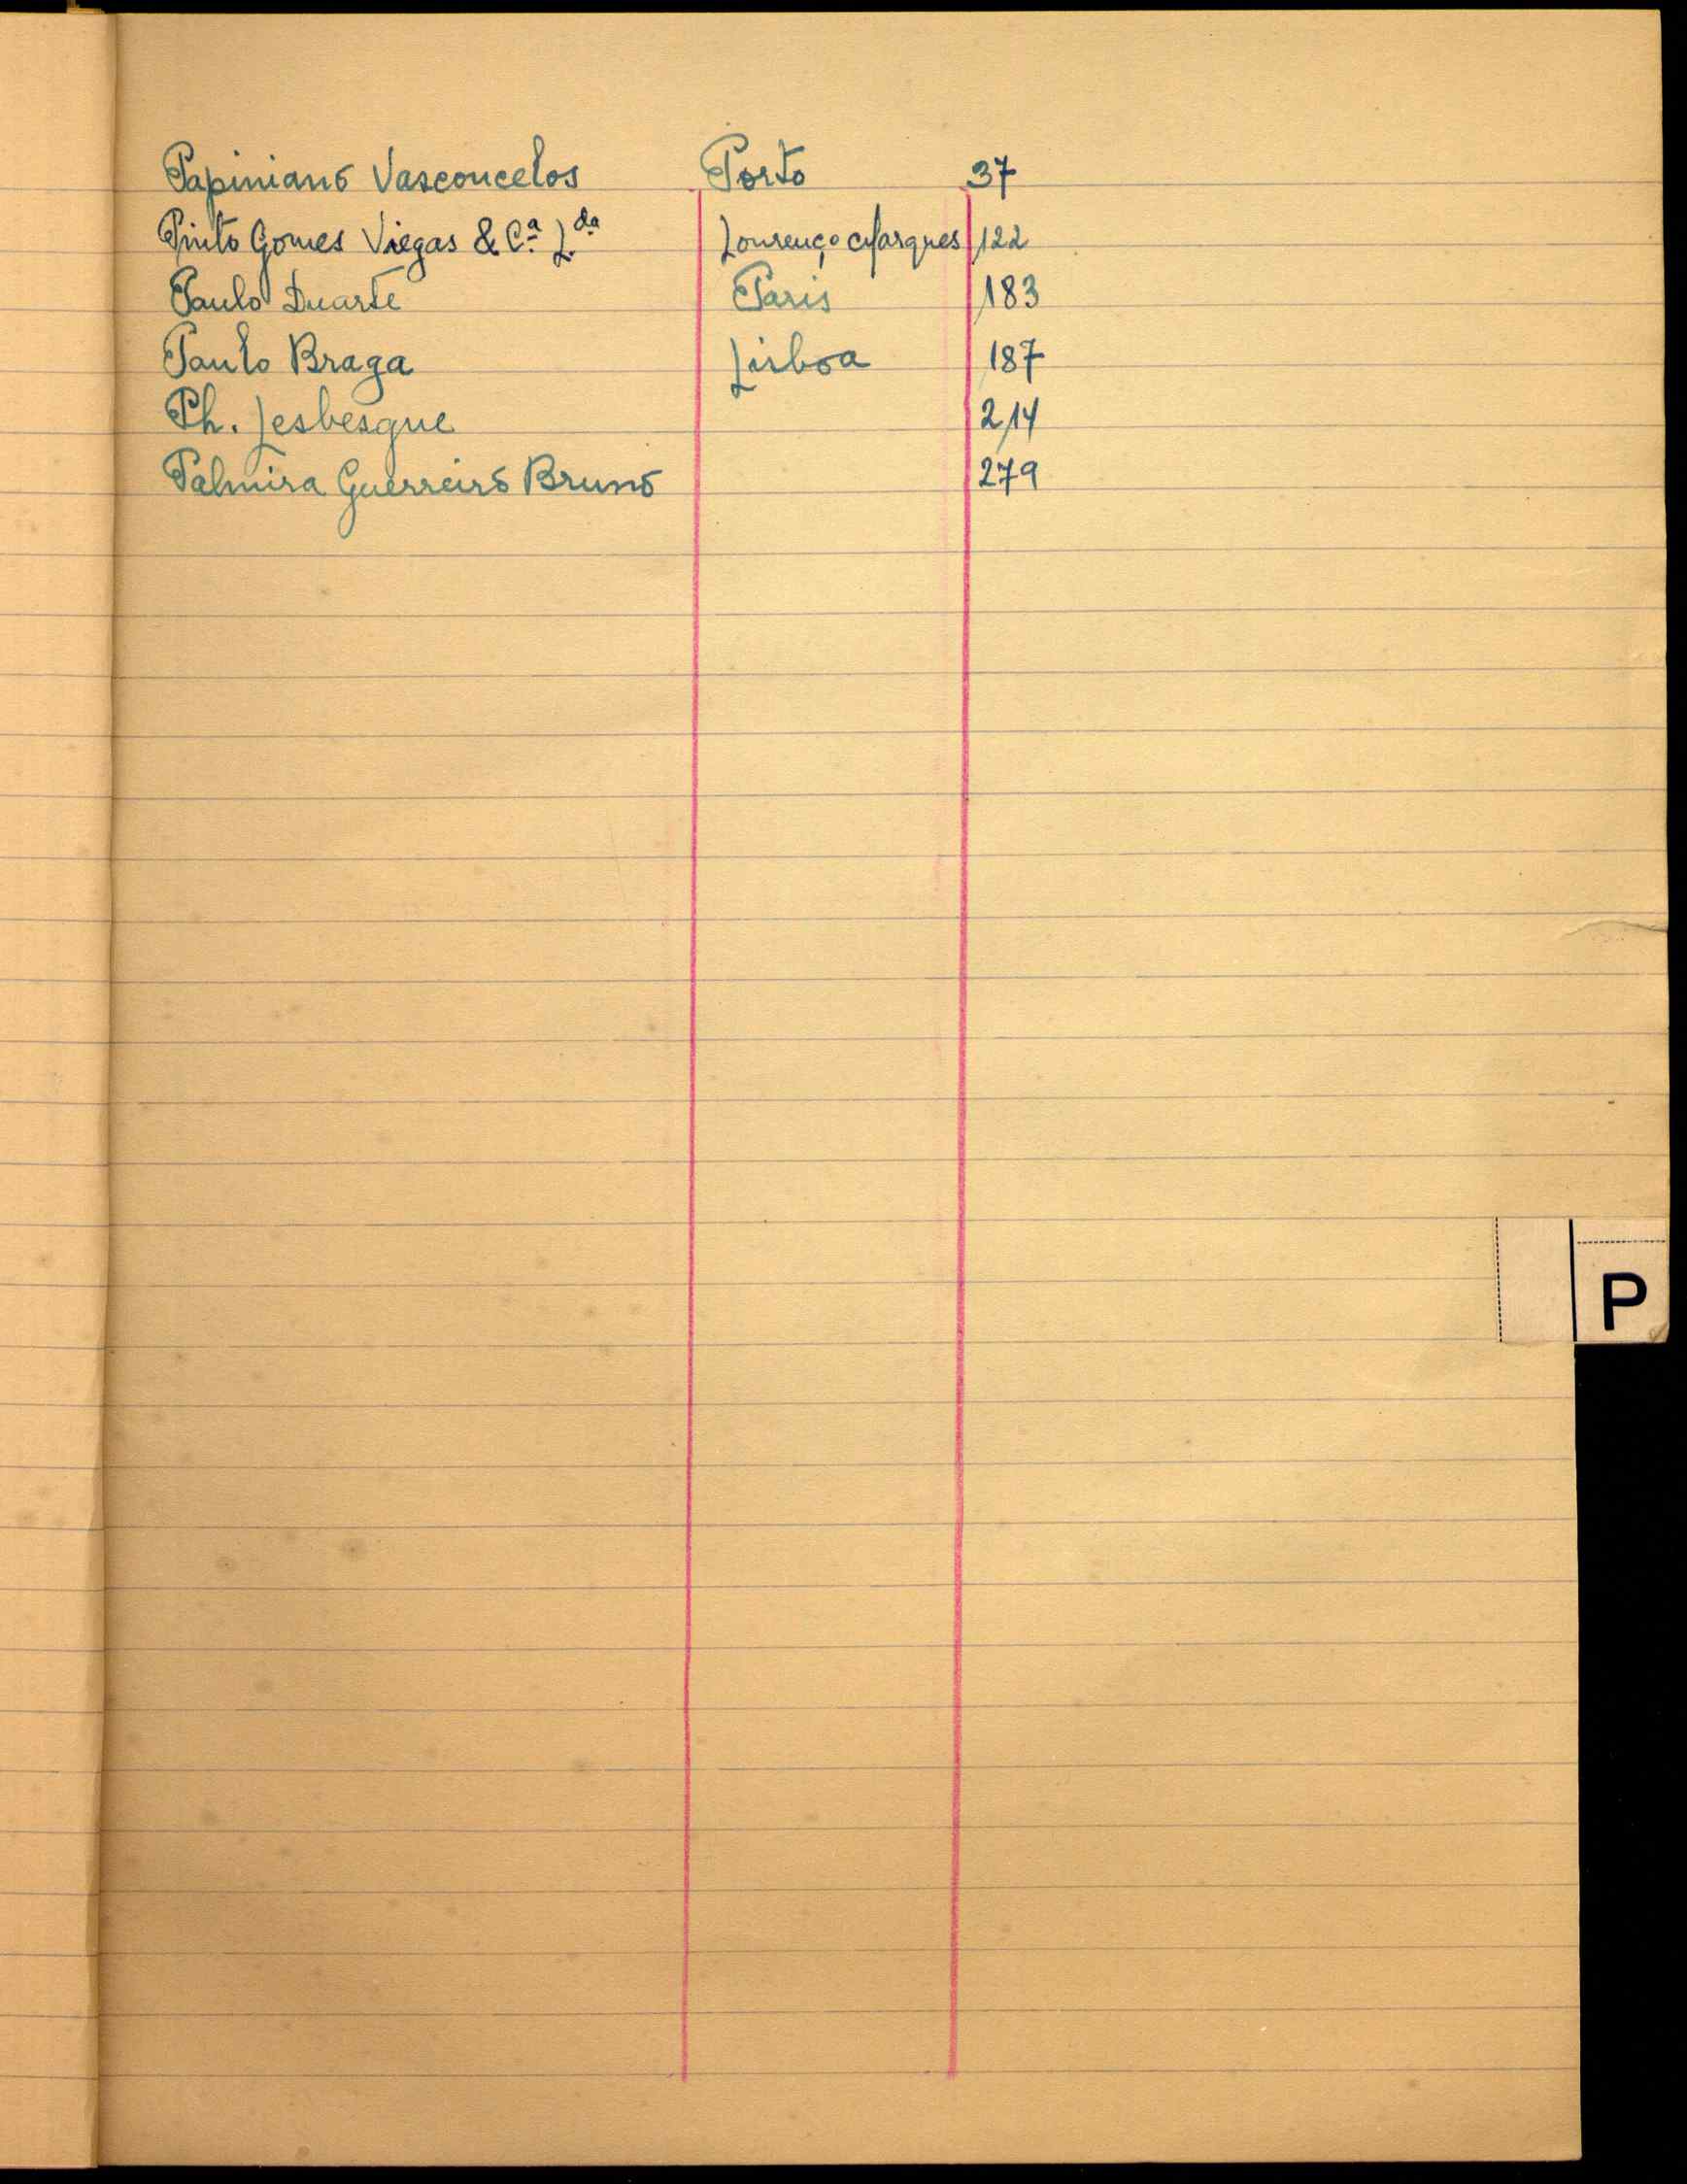 Papiniano Vasconcelos Porto 37
Pinto Gomes Viegas & C.ª L.da Lourenço Marques 122
Paulo Duarte Paris 183
Paulo Braga Lisboa 187
Ph. Lesbesgue 214
Palmira Guerreiro Bruno 279
P